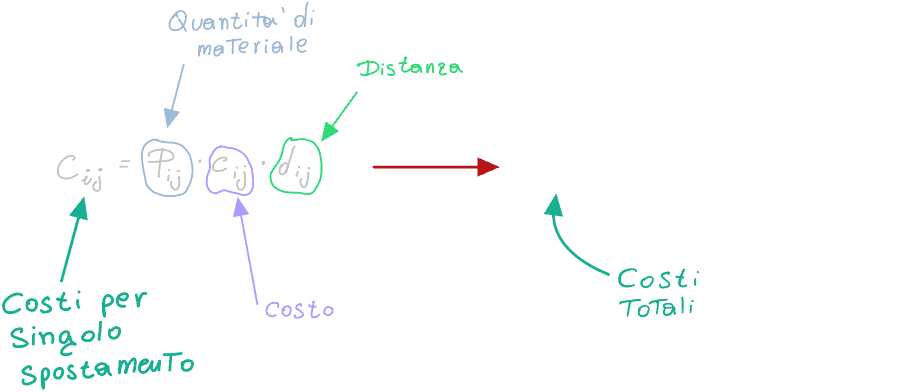 Quantita' di
materiale
Distanza
Cij = Pij · cij · dij
Costi per
singolo
spostamento
Costo
Costi
Totali